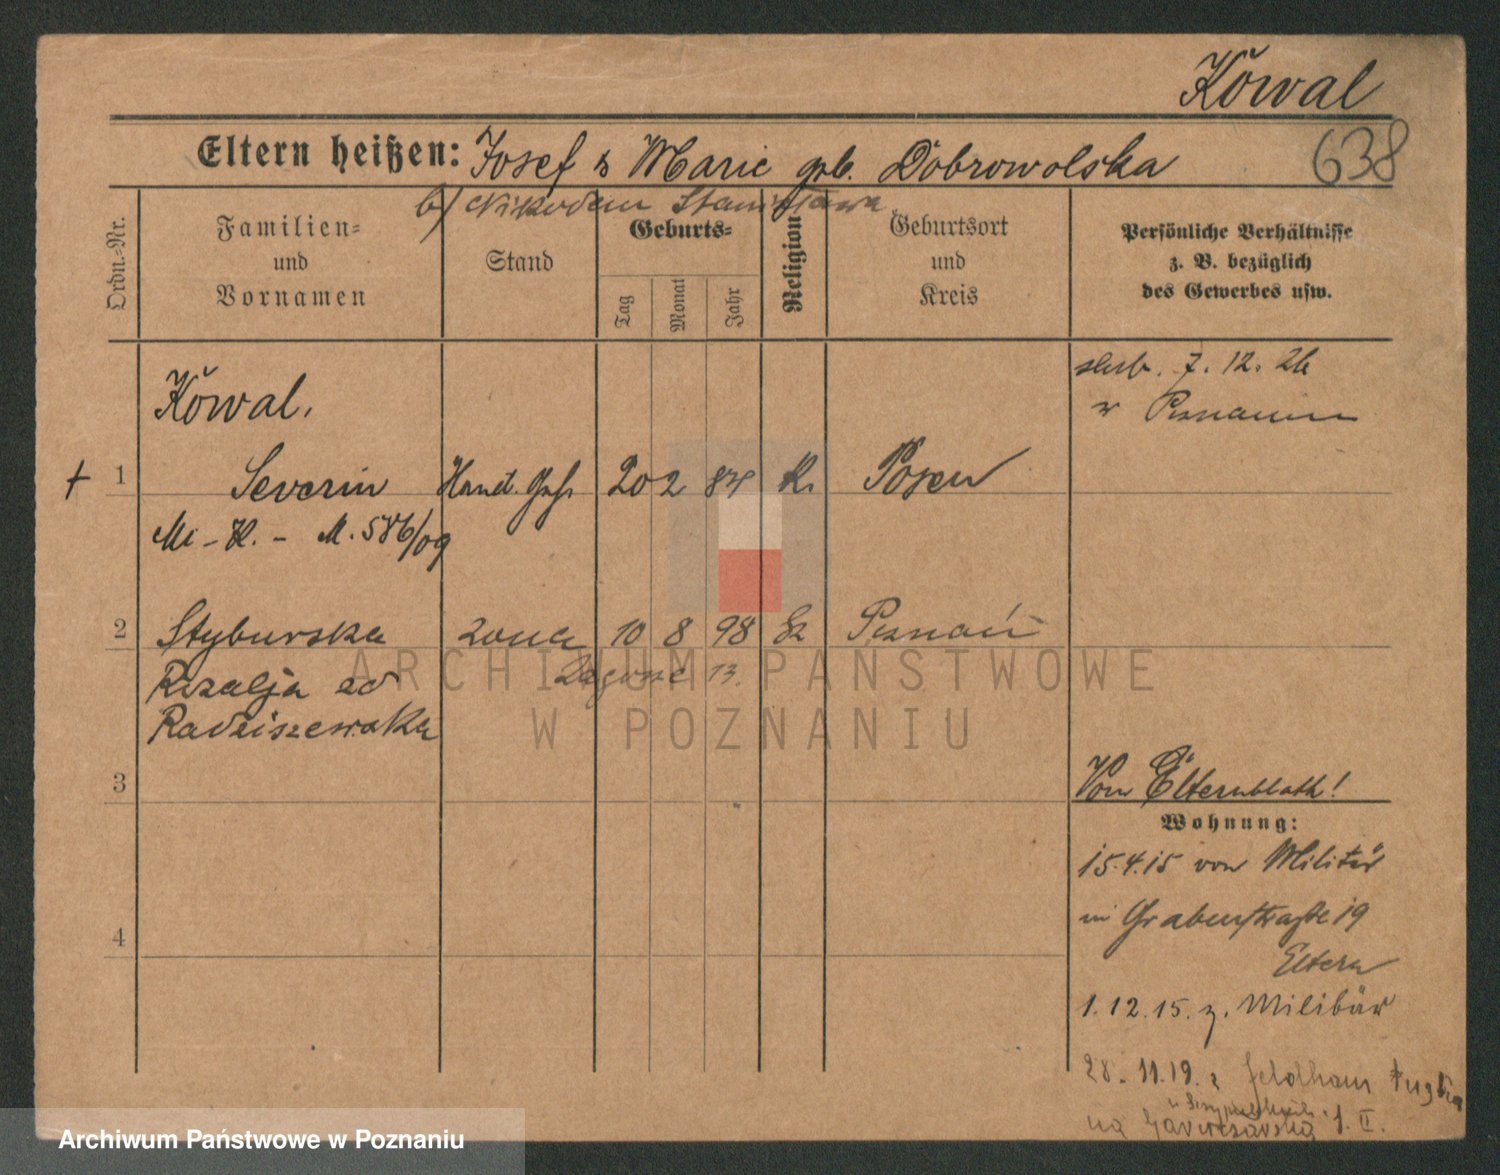 Kowal
638
Eltern heißen: Josef & Marie geb. Dobrowolska
b/ Nikodem Stanisława
Ordn.-Nr.
Familien- und Vornamen
Stand
Geburts-
Tag
Monat
Jahr
Religion
Geburtsort und Kreis
Persönliche Verhältnisse z. B. bezüglich des Gewerbes usw.
ślub. 7. 12. 26
w Poznaniu
Kowal,
+ 1 Severin Hand. Geh. 20 2 84 K. Posen
Mi - K. - M. 586/09
2 Styburska żona 10 8 98 Poznań
Rozalja
Radziszewska
3
Vom Elternblatt!
Wohnung:
15.4.15 von Militär
in Grabenstraße 19
4
Eltern
1.12.15. z. Militär
28. 11. 19. z Feldham
na 1. II.
ARCHIWUM PAŃSTWOWE
W POZNANIU
Archiwum Państwowe w Poznaniu